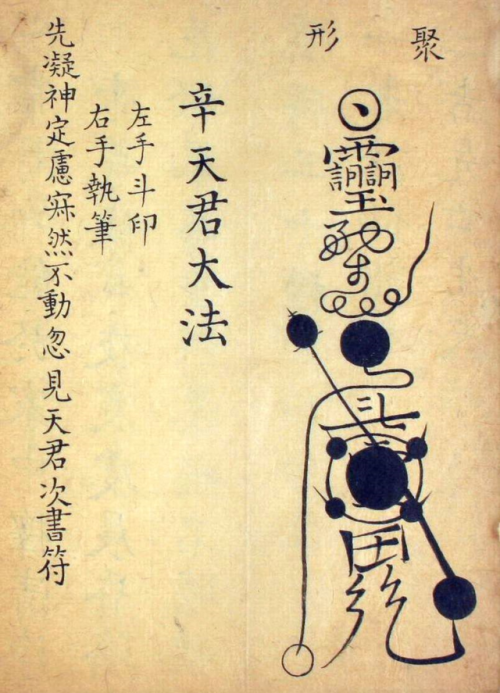 聚形
辛天君大法
左手斗印
右手執筆
先凝神定慮寂然不動忽見天君次書符